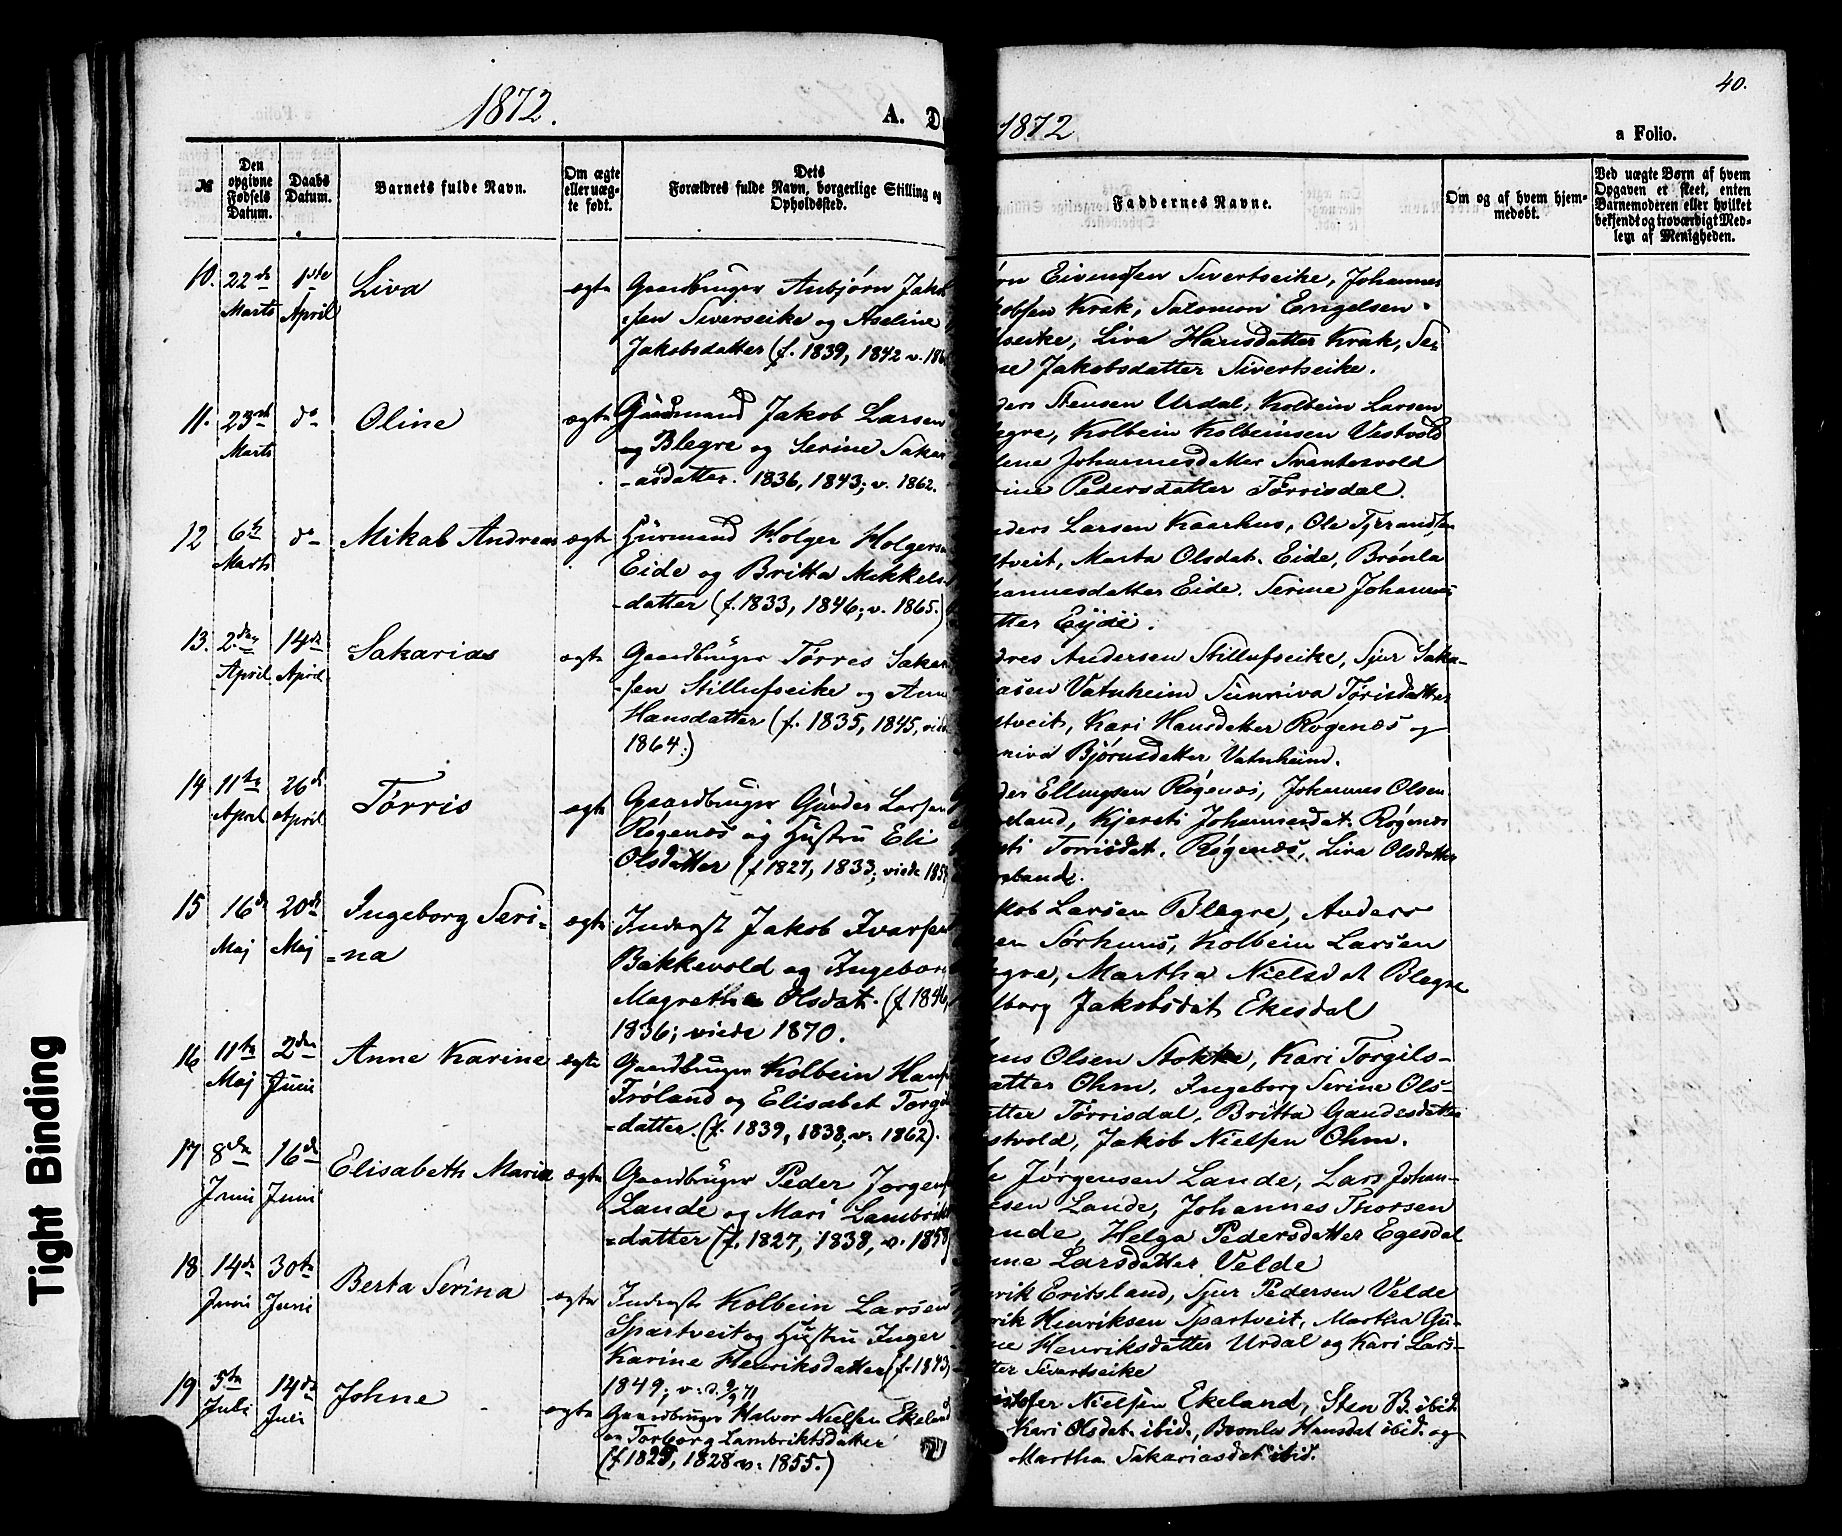 40.
1872.
A. D
1872
a Folio.
№
Den opgivne Fødsels Datum.
Daabs Datum.
Barnets fulde Navn.
Om ægte eller uæg-te født.
Dets
Forældres fulde Navn, borgerlige Stilling og
Opholdssted.
Faddernes Navne.
Om og af hvem hjem-medøbt.
Ved uægte Børn af hvem Opgaven er skeet, enten Barnemoderen eller hvilket bekjendt og troværdigt Med-lem af Menigheden.
10. 22de Marts 1ste April Liva ægte
Gaardbruger Asbjørn Jakob
-sen Siverseike og Aseline
Jakobsdatter (f. 1839, 1842 v. 186
rn Eivensen Sivertseike, Johannes
kobsen Krak, Salomon Engelsen
seike, Liva Hansdatter Krak, Se-
ne Jakobsdatter Sivertseike.
11. 23de Marts do Oline ægte
Gaardmand Jakob Larsen
Blegre og Serine Sakari
-asdatter. 1836, 1843; v. 1862.
ders Stensen Urdal, Kolbein Larsen
legre, Kolbein Kolbeinsen Vestvold
lene Johannesdatter Svantesvold
rine Pedersdatter Tørrisdal.
12 6te Marts do Mikal Andreas ægte
Huusmand Holger Holgers
Eide og Britta Mikkels
-datter (f. 1833, 1846; v. 1865.)
nders Larsen Kaarhus, Ole Tjerandsen
tveit, Marta Olsdat. Eide, Brønla
hannesdatter Eide. Serine Johannes
tter Eyde.
13. 2den April 14de April Sakarias ægte
Gaardbruger Tørres Sakar
-sen Stillufseike og Anne
Hansdatter (f. 1835, 1845, vied
1864.)
dres Andersen Stillufseike, Sjur Saka-
iasen Vatnheim Sunniva Tørisdatter
tveit, Kari Hansdatter Røgenæs og
niva Bjørnsdatter Vatnheim.
14 11te April 26de April Tørris ægte
Gaardbruger Gunder Larsen
Røgenæs og Hustru Eli
Olsdatter (f 1827, 1833; viede 185
der Ellingsen Røgenæs, Johannes Olsen
eland, Kjersti Johannesdat. Røgenæs
sti Torrisdat. Røgenæs, Liva Olsdatter
eland.
15 16de Maj 20de Maj Ingeborg Seri-
-na ægte
Inderst Jakob Ivarsen
Bakkevold og Ingebor
Magrethe Olsdat. (f 1846,
1836; viede 1870.
kob Larsen Blegre, Anders
en Sørhuus, Kolbein Larsen
legre, Martha Nielsdat Blegre
lborg Jakobsdat Ekesdal
16 11te Maj 2den Juni Anne Karine ægte
Gaardbruger Kolbein Hans
Frøland og Elisabet Torgil
-datter. (f. 1839, 1838; v. 1862).
us Olsen Stokke, Kari Torgils-
datter Ohm, Ingeborg Serine Ols-
atter Tørrisdal, Britta Gaudesdatter
stvold, Jakob Nielsen Ohm.
17 8de Juni 16de Juni Elisabeth Maria ægte
Gaardbruger Peder Jørgens
Lande og Mari Lambrikt
-datter (f. 1827, 1838, v. 1858)
e Jørgensen Lande, Lars Johan-
esen Lande, Johannes Thorsen
ande, Helga Pedersdatter Egesdal
ne Larsdatter Velde
18 14de Juni 30te Juni Berta Serina ægte
Inderst Kolbein Larsen
Spartveit og Hustru Inger
Karine Henriksdatter (f. 1843,
1849; v. d. 9/9 71
rik Eritsland, Sjur Pedersen Velde
rik Henriksen Spartveit, Martha Gu-
ne Henriksdatter Urdal og Kari Lars-
tter Sivertseike
19 5te Juli 14de Juli Johne ægte
Gaardbruger Halvor Nielsen Ekeland
og Torborg Lambriktsdatter
(f 1825, 1828 v. 1855.)
istofer Nielsen Ekeland, Sten B. ibid.
Kari Olsdat. ibid., Brønla Hansdat ibid. og
Martha Sakariasdat ibid.
Tight Binding